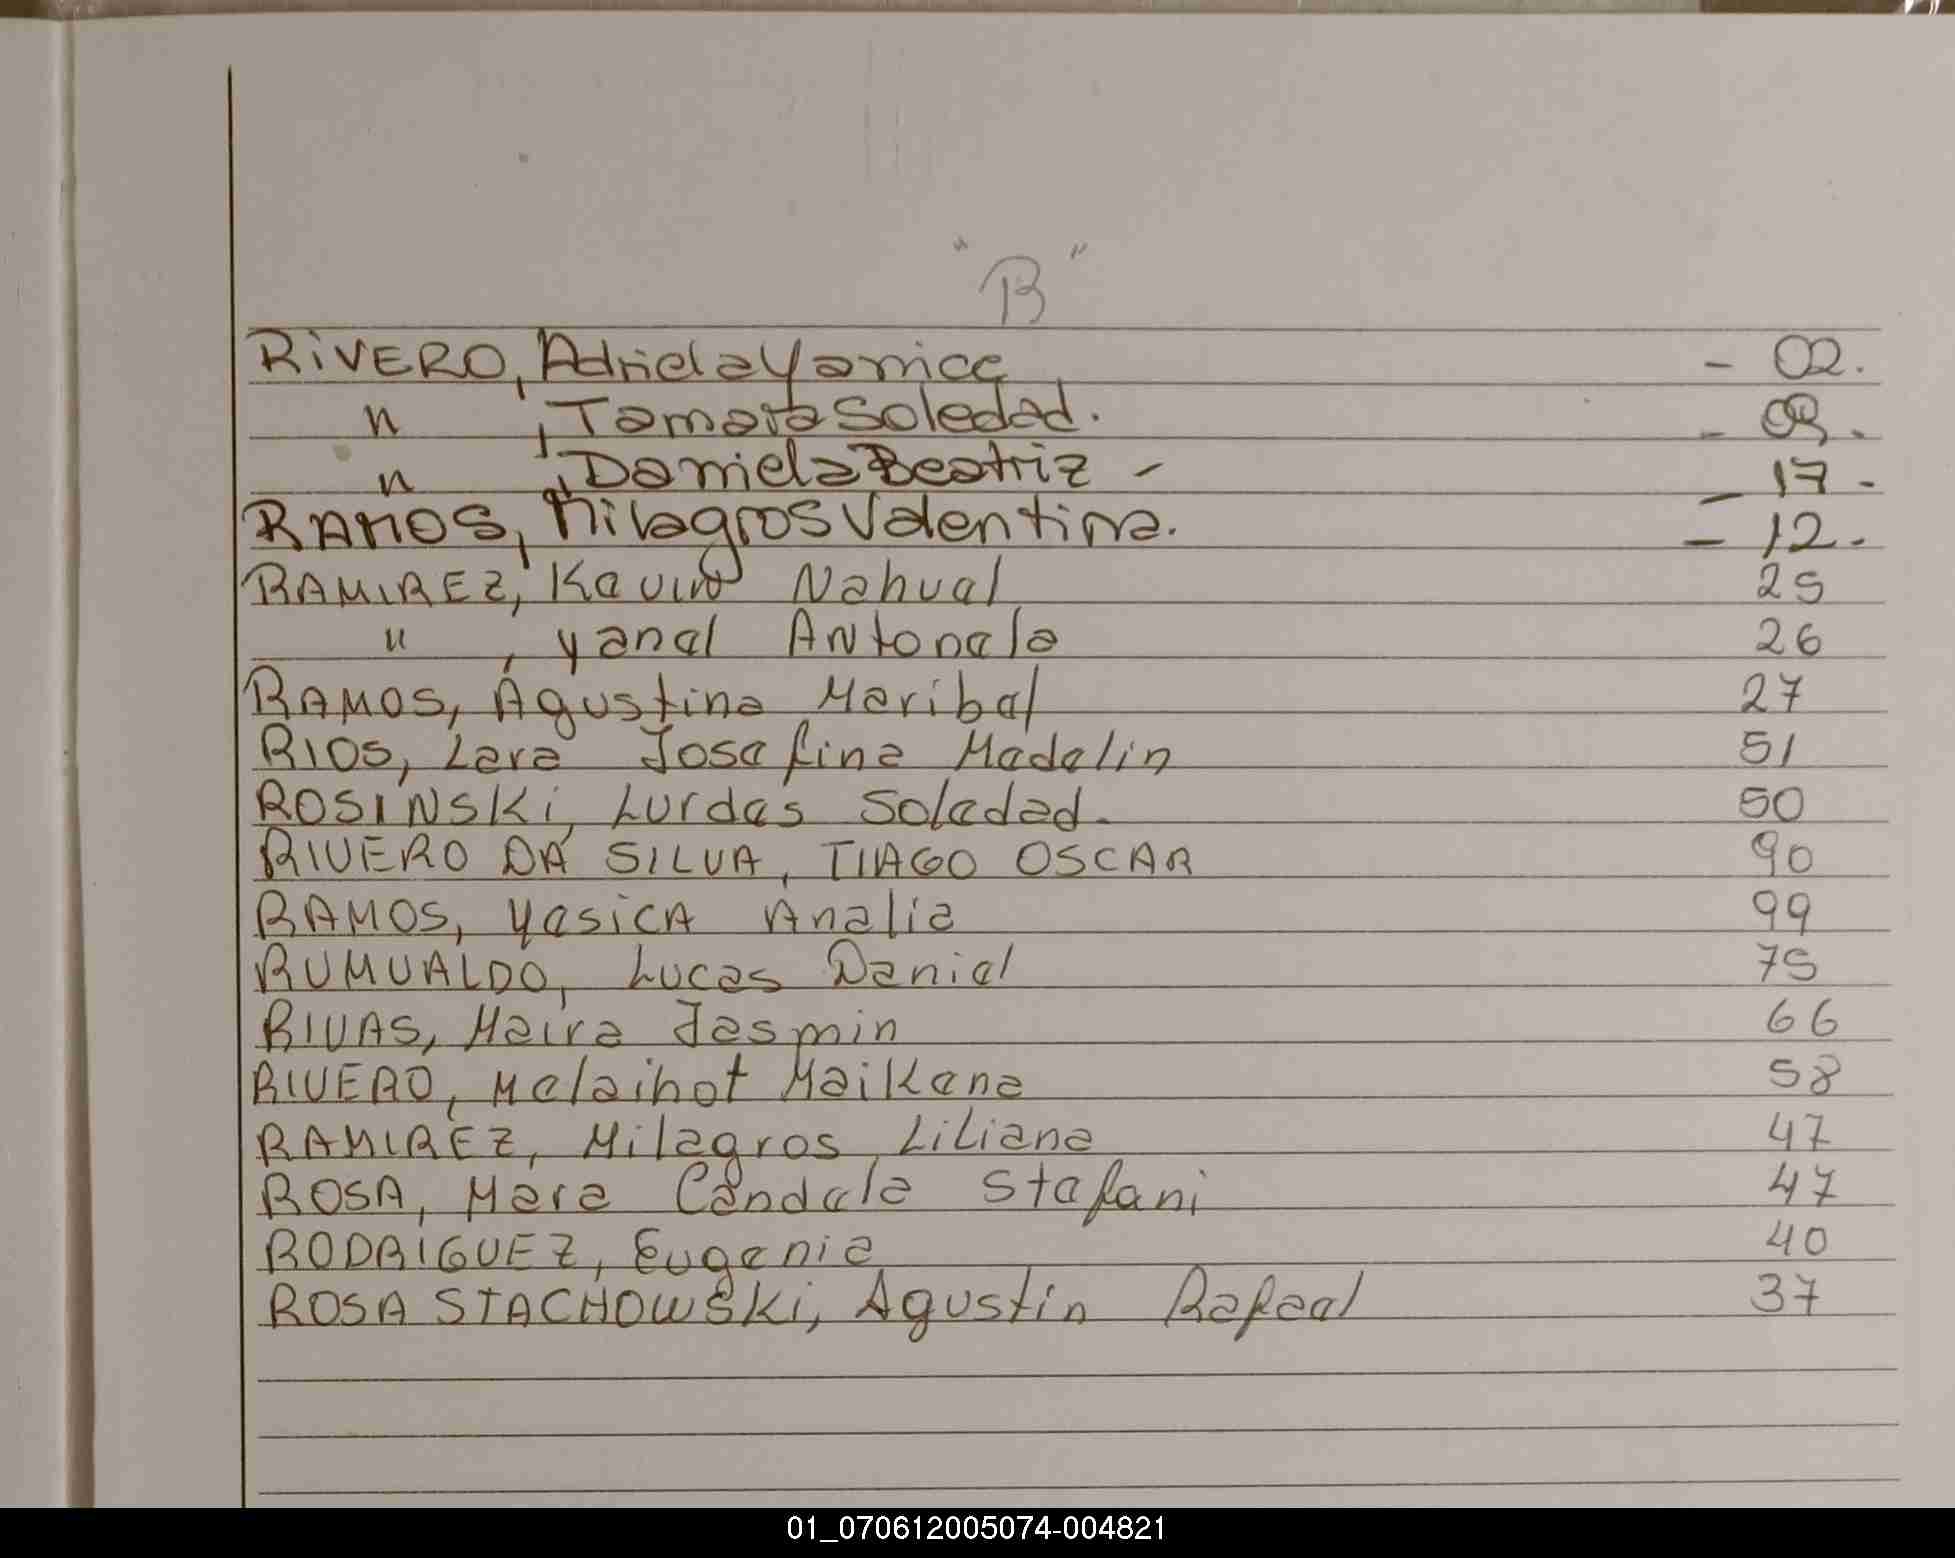 "R"
RIVERO, Adriela Yanice - 02.
" , Tamara Soledad. - 03.
" , Daniela Beatriz - - 17.
RAMOS, Milagros Valentina. - 12.
RAMIREZ, Kevin Nahuel 25
" , Yanel Antonela 26
RAMOS, Agustina Maribel 27
RIOS, Lara Josefina Madelin 51
ROSINSKi, Lurdes Soledad. 50
RIVERO DA SILVA, TIAGO OSCAR 90
RAMOS, YesicA Analia 99
RUMUALDO, Lucas Daniel 75
RIVAS, Maira Jasmin 66
RIVERO, Melaihot Maikena 58
RAMIREZ, Milagros LiLiana 47
ROSA, Mara Candela Stefani 47
RODRIGUEZ, Eugenia 40
ROSA STACHOWSKi, Agustin Rafael 37
01_070612005074-004821